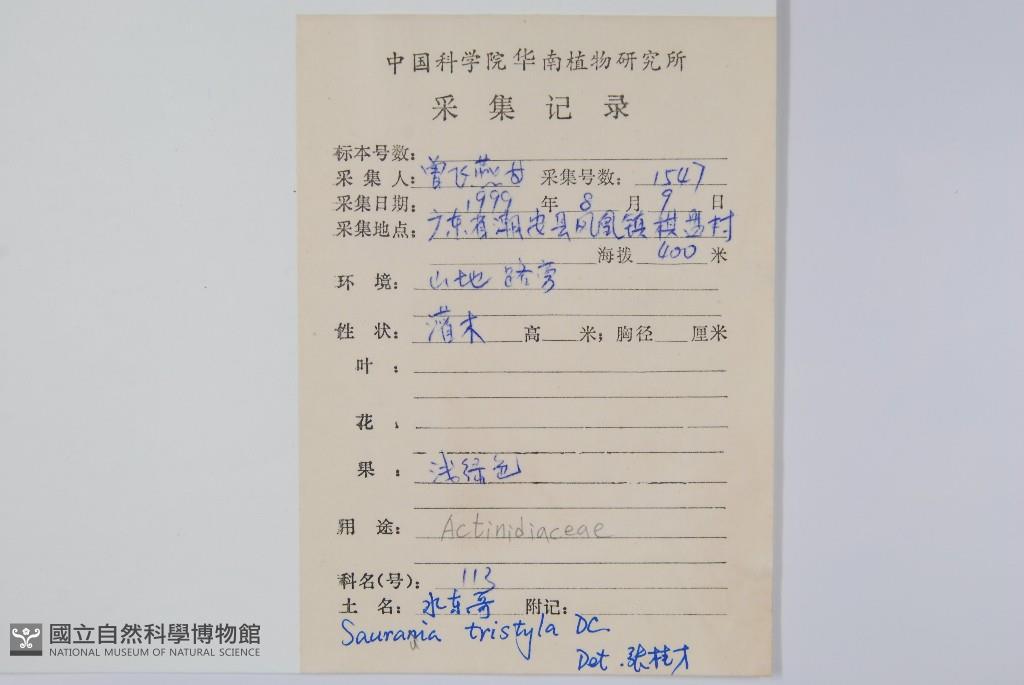 中国科学院华南植物研究所
采集记录
标本号数:
采集人: 曾飞燕 采集号数: 1547
采集日期: 1999 年 8 月 9 日
采集地点: 广东省潮安县凤凰镇棋盘村
海拨 400 米
环境: 山地路旁
性状: 灌木 高 米; 胸径 厘米
叶:
花:
果: 浅绿色
用途: Actinidiaceae
科名(号): 113
土名: 水东哥 附记:
Saurauia tristyla DC.
Det. 张桂才
國立自然科學博物館
NATIONAL MUSEUM OF NATURAL SCIENCE